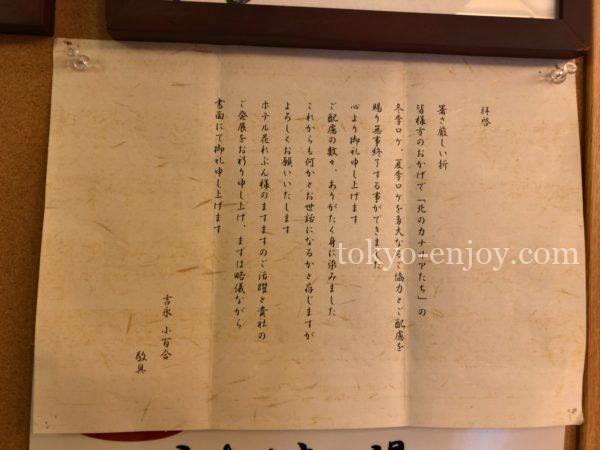 拝啓
暑さ厳しい折
皆様方のおかげで「北のカナリアたち」の
冬季ロケ、夏季ロケを多大なるご協力とご配慮を
賜り無事終了する事ができました
心より御礼申し上げます
ご配慮の数々、ありがたく身に染みました
これからも何かとお世話になるかと存じますが
よろしくお願いいたします
ホテル花れぶん様のますますのご活躍と貴社の
ご発展をお祈り申し上げ、まずは略儀ながら
書面にて御礼申し上げます
吉永 小百合
敬具
tokyo-enjoy.com